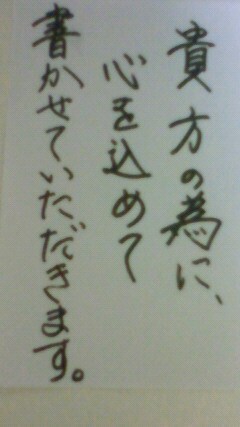 貴方の為に、
心を込めて
書かせていただきます。